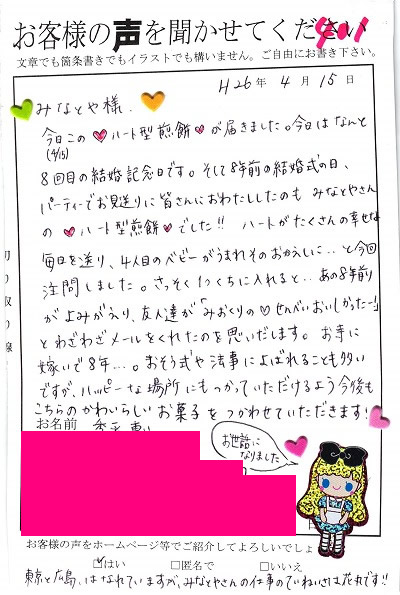 お客様の声を聞かせてください
401
文章でも箇条書きでもイラストでも構いません。ご自由にお書き下さい。
H26年 4月 15日
みなとや様.
今日この♥ハート型煎餅♥が届きました。今日はなんと
(4/15)
8回目の結婚記念日です。そして8年前の結婚式の日、
パーティーでお見送りに皆さんにおわたししたのも みなとやさん
の ♥ハート型煎餅♥でした!! ハートがたくさんの幸せな
毎日を送り、4人目のベビーがうまれそのおかえしに…と今回
注問しました。さっそく1つくちに入れると… あの8年前
がよみがえり、友人達が「みおくりの♥せんべいおいしかったー」
とわざわざメールをくれたのを思いだします。お寺に
嫁いで8年…。おそう式や法事によばれることも多い
ですが、ハッピーな場所にもつかっていただけるよう今後も
こちらのかわいらしいお菓子をつかわせていただきます!
お名前
お世話に
なりました
切り取り線
お客様の声をホームページ等でご紹介してよろしいでしょ
☑はい □匿名で □いいえ
東京と広島、はなれていますが、みなとやさんの仕事のていねいさは花丸です!!